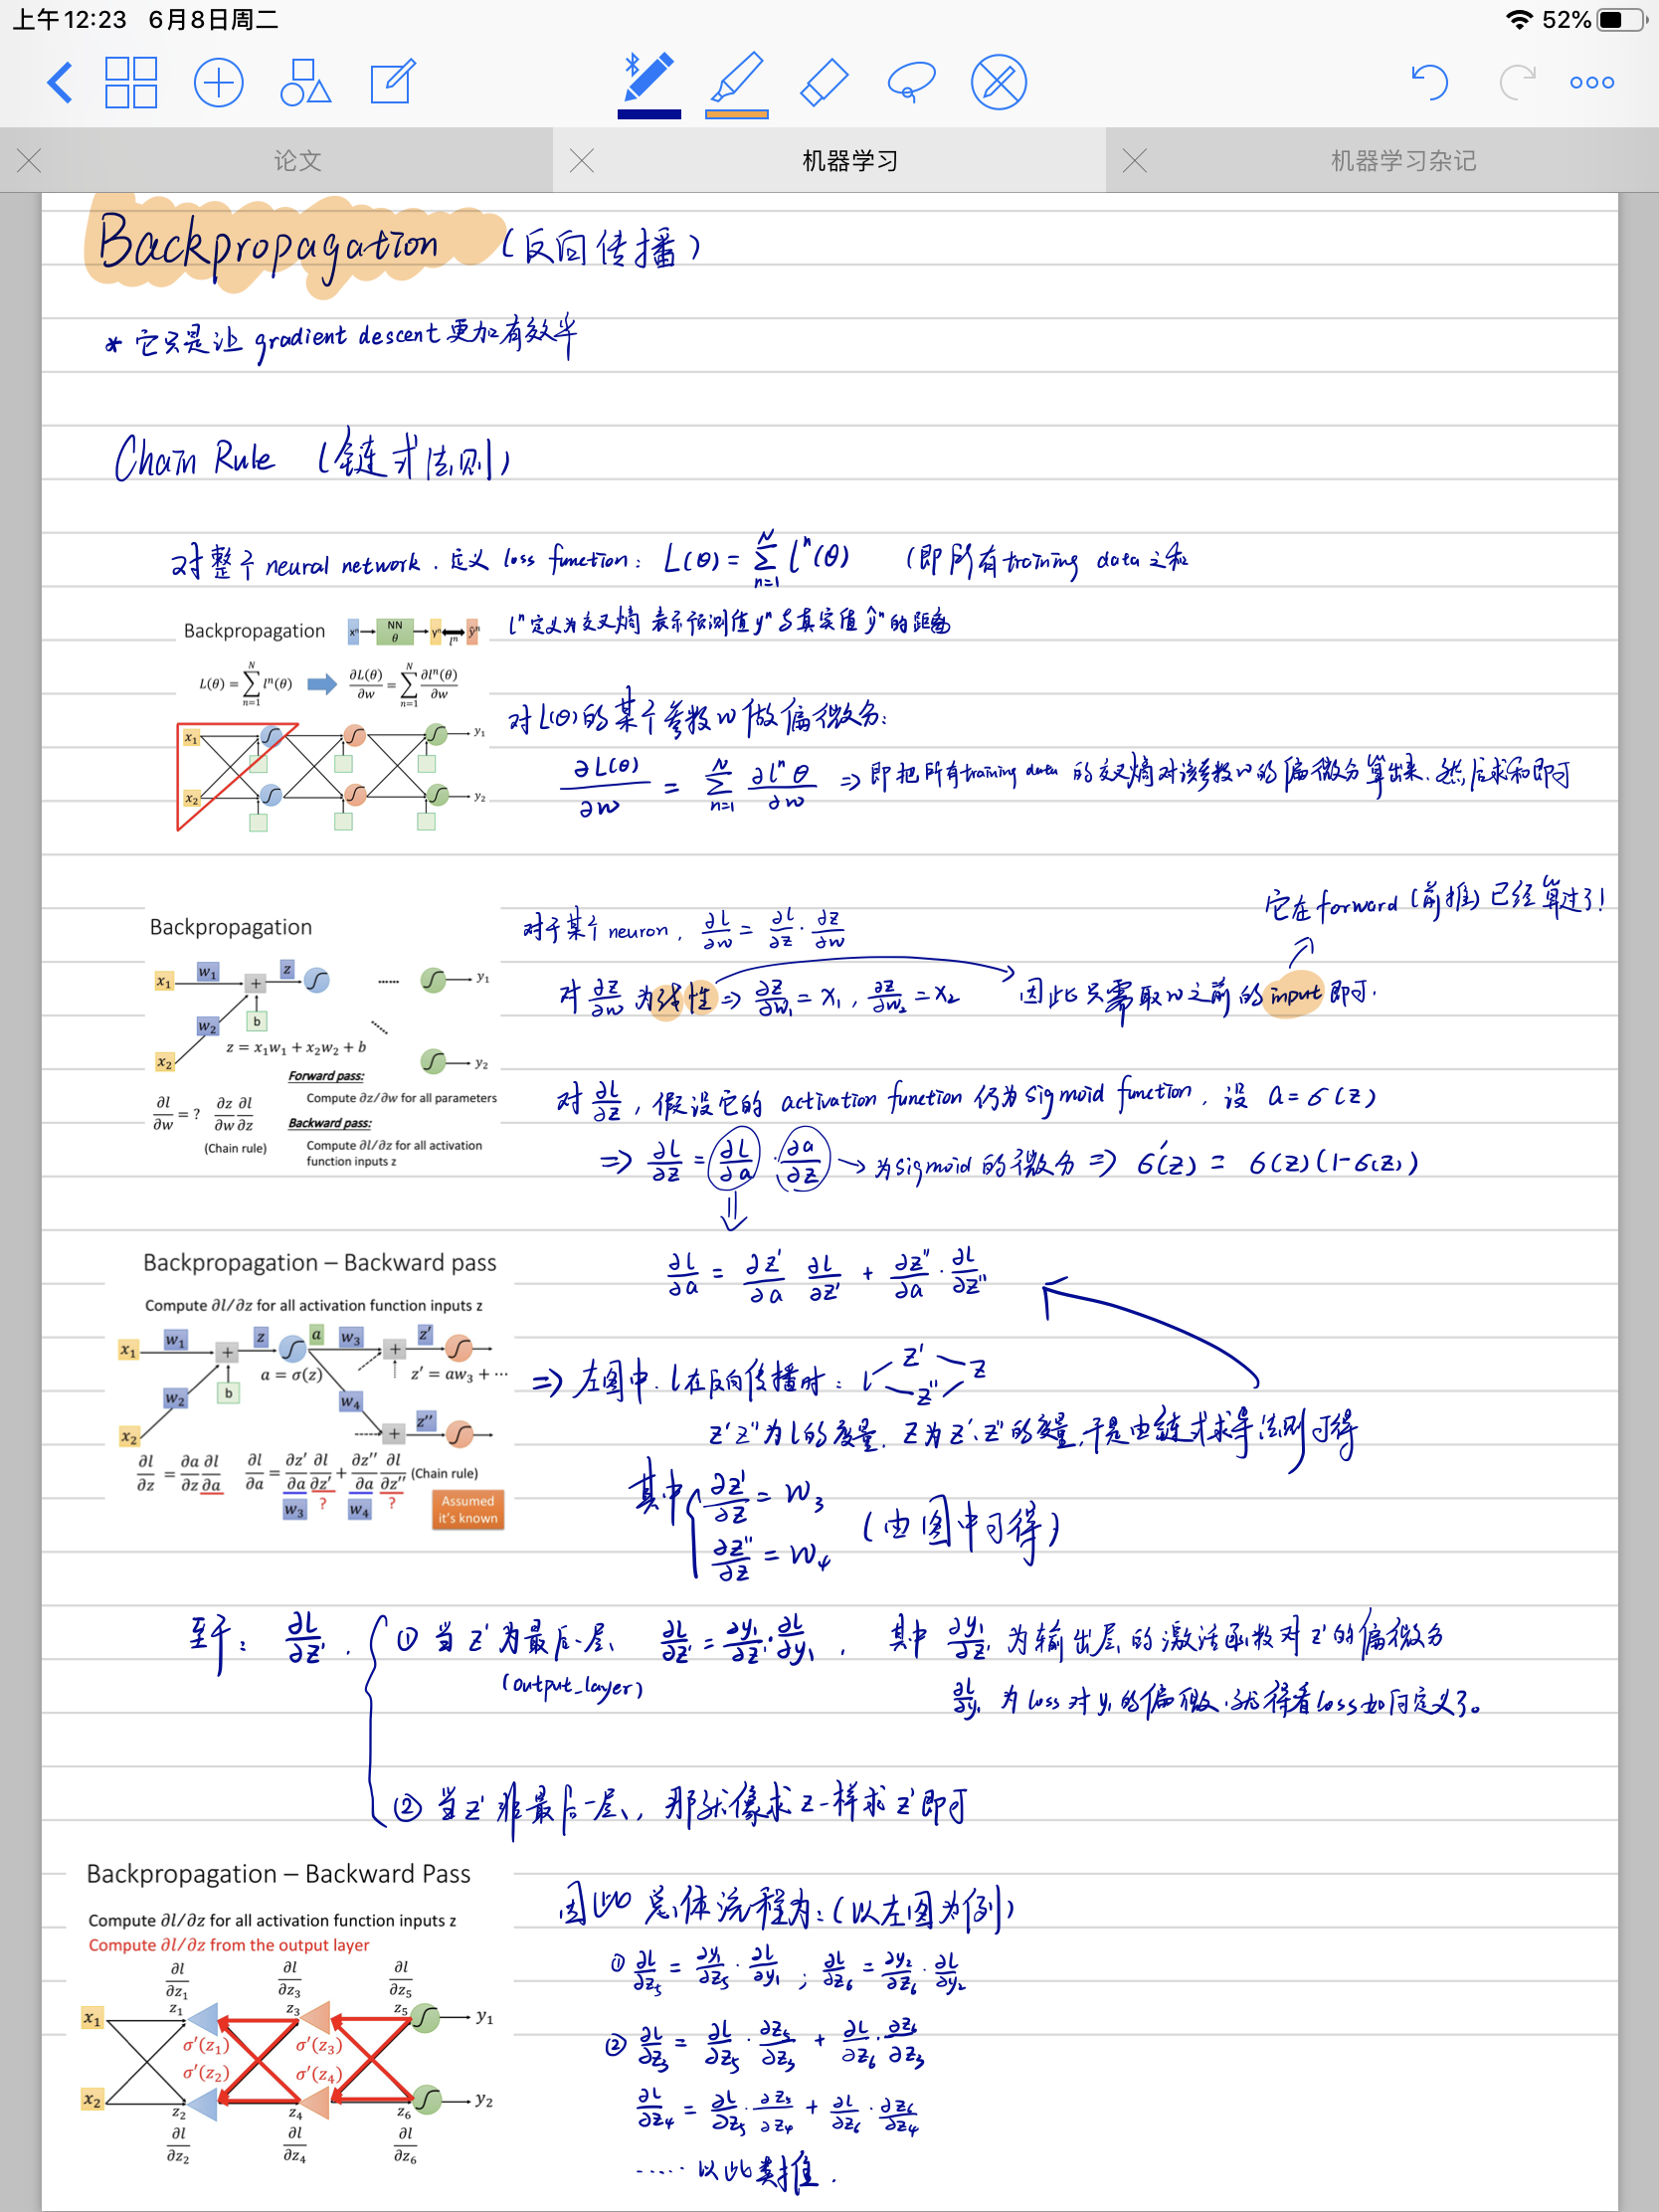 上午12:23 6月8日周二 52%
论文 机器学习 机器学习杂记
Backpropagation (反向传播)
* 它只是让 gradient descent 更加有效率
Chain Rule (链式法则)
对整个 neural network. 定义 loss function: L(θ) = Σ_{n=1}^{N} l^n(θ) (即所有training data 之和
l^n 定义为交叉熵 表示预测值 y^n 与真实值 ŷ^n 的距离
Backpropagation
x^n NN θ y^n l^n ŷ^n
L(θ) = Σ_{n=1}^{N} l^n(θ) ∂L(θ)/∂w = Σ_{n=1}^{N} ∂l^n(θ)/∂w
x₁ y₁
x₂ y₂
对 L(θ) 的某个参数 w 做偏微分:
∂L(θ)/∂w = Σ_{n=1}^{N} ∂l^n θ/∂w ⇒ 即把所有training data 的交叉熵对该参数w的偏微分算出来, 然后求和即可
它在 forward (前推) 已经算过了!
Backpropagation
x₁ w₁ + z y₁
w₂ b
x₂ z = x₁w₁ + x₂w₂ + b y₂
Forward pass:
Compute ∂z/∂w for all parameters
∂l/∂w = ? ∂z/∂w ∂l/∂z
(Chain rule)
Backward pass:
Compute ∂l/∂z for all activation
function inputs z
对于某个 neuron, ∂l/∂w = ∂l/∂z · ∂z/∂w
对 ∂z/∂w 为线性 ⇒ ∂z/∂w₁ = x₁, ∂z/∂w₂ = x₂ 因此只需取w之前的 input 即可.
对 ∂l/∂z, 假设它的 activation function 仍为 sigmoid function, 设 a = σ(z)
⇒ ∂l/∂z = ∂l/∂a · ∂a/∂z → 为sigmoid 的微分 ⇒ σ'(z) = σ(z)(1-σ(z))
∂l/∂a = ∂z'/∂a ∂l/∂z' + ∂z''/∂a · ∂l/∂z''
Backpropagation – Backward pass
Compute ∂l/∂z for all activation function inputs z
x₁ w₁ + z a w₃ + z'
a = σ(z) z' = aw₃ + ⋯
w₂ b w₄
x₂ + z''
∂l/∂z = ∂a/∂z ∂l/∂a ∂l/∂a = ∂z'/∂a ∂l/∂z' + ∂z''/∂a ∂l/∂z'' (Chain rule)
w₃ ? w₄ ?
Assumed
it's known
⇒ 左图中. l 在反向传播时: l z' z'' z
z' z'' 为 l 的变量. z 为 z'、z'' 的变量, 于是由链式求导法则可得
其中 { ∂z'/∂z = w₃
∂z''/∂z = w₄ (由图中可得)
至于: ∂l/∂z'. { ① 当 z' 为最后一层 ∂l/∂z' = ∂y₁/∂z' · ∂l/∂y₁, 其中 ∂y₁/∂z' 为输出层的激活函数对 z' 的偏微分
(output_layer) ∂l/∂y₁ 为 loss 对 y₁ 的偏微, 就得看loss如何定义了。
② 当 z' 非最后一层, 那就像求 z 一样求 z' 即可
Backpropagation – Backward Pass
Compute ∂l/∂z for all activation function inputs z
Compute ∂l/∂z from the output layer
∂l/∂z₁ ∂l/∂z₃ ∂l/∂z₅
x₁ z₁ z₃ z₅ y₁
σ'(z₁) σ'(z₃)
σ'(z₂) σ'(z₄)
x₂ z₂ z₄ z₆ y₂
∂l/∂z₂ ∂l/∂z₄ ∂l/∂z₆
因此 总体流程为: (以左图为例)
① ∂l/∂z₅ = ∂y₁/∂z₅ · ∂l/∂y₁ ; ∂l/∂z₆ = ∂y₂/∂z₆ · ∂l/∂y₂
② ∂l/∂z₃ = ∂l/∂z₅ · ∂z₅/∂z₃ + ∂l/∂z₆ · ∂z₆/∂z₃
∂l/∂z₄ = ∂l/∂z₅ · ∂z₅/∂z₄ + ∂l/∂z₆ · ∂z₆/∂z₄
...... 以此类推.